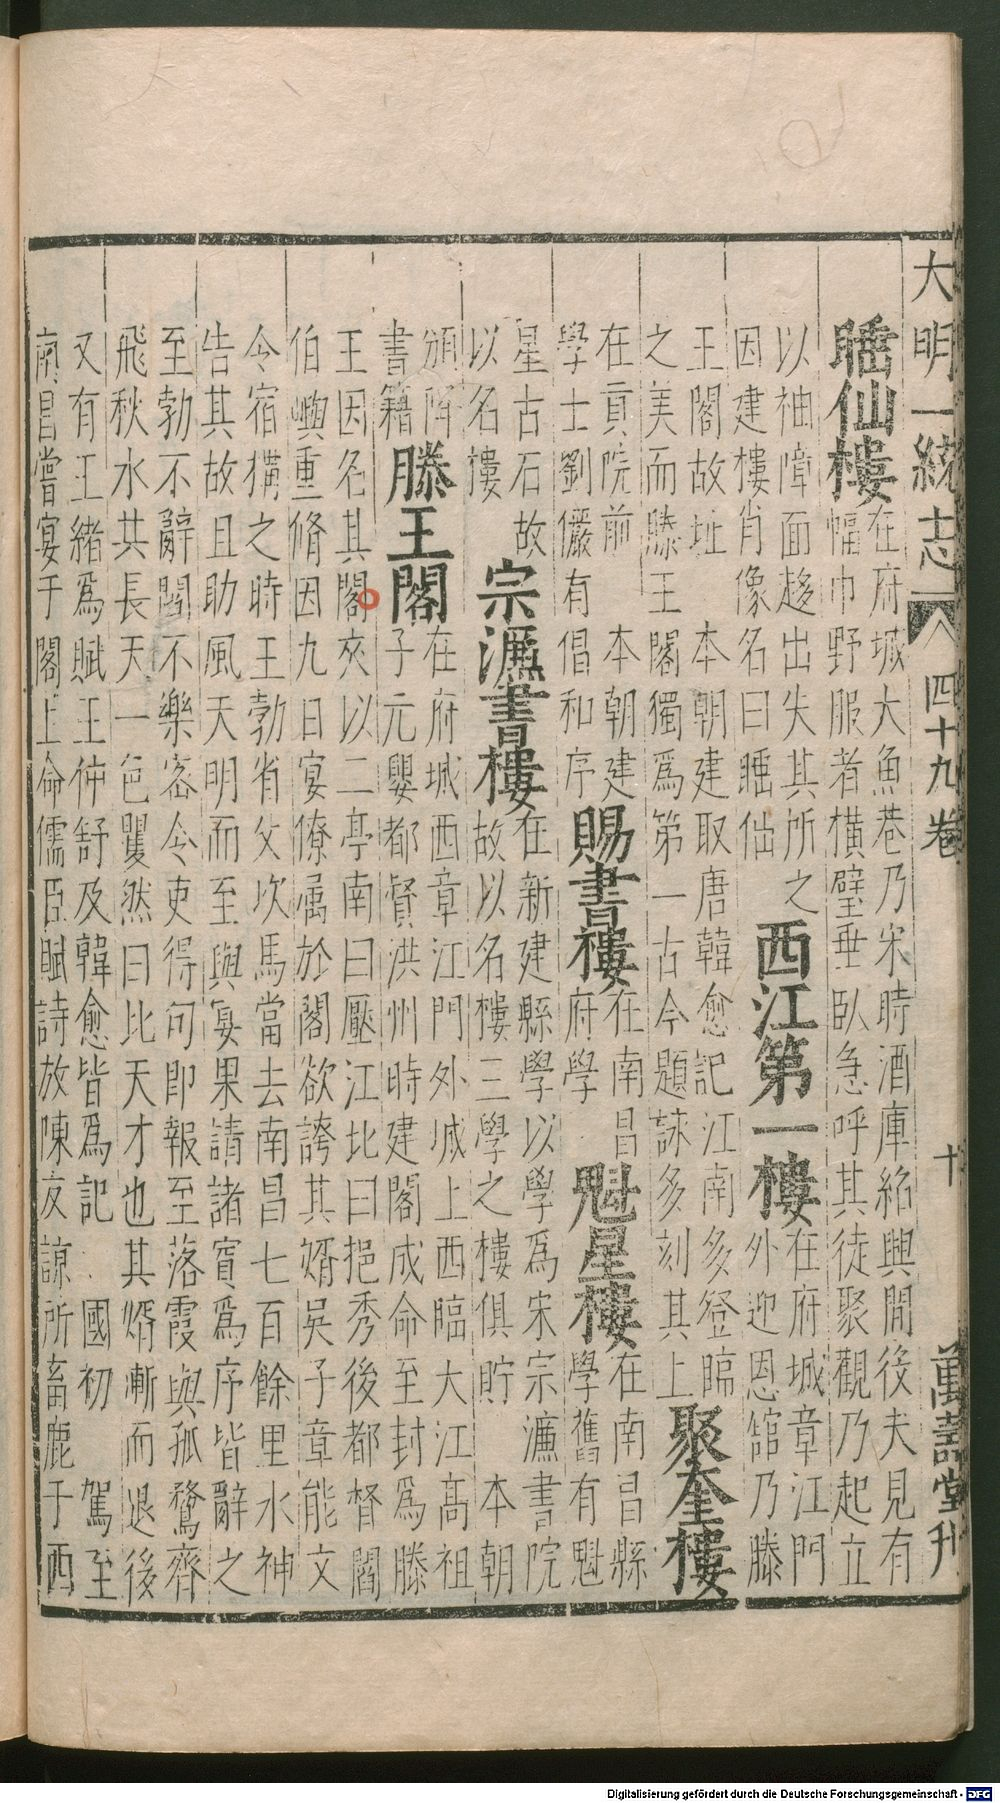 大明一統志 四十九卷 十 萬壽堂刋
睡仙樓
在府城大魚巷乃宋時酒庫紹興間後夫見有
幅巾野服者橫璧垂臥急呼其徒聚觀乃起立
以袖障面趍出失其所之
因建樓肖像名曰睡仙
西江第一樓
在府城章江門
外迎恩館乃滕
王閣故址 本朝建取唐韓愈記江南多登臨
之美而滕王閣獨爲第一古今題詠多刻其上
聚奎樓
在貢院前 本朝建
學士劉儼有倡和序
賜書樓
在南昌
府學
魁星樓
在南昌縣
學舊有魁
星古石故
以名樓
宗濂書樓
在新建縣學以學爲宋宗濂書院
故以名樓三學之樓俱貯 本朝
頒降
書籍
滕王閣
在府城西章江門外城上西臨大江高祖
子元嬰都督洪州時建閣成命至封爲滕
王因名其閣夾以二亭南曰壓江北曰挹秀後都督閻
伯嶼重脩因九日宴僚属於閣欲誇其婿吳子章能文
令宿搆之時王勃省父次馬當去南昌七百餘里水神
告其故且助風天明而至與宴果請諸賓爲序皆辭之
至勃不辭閻不樂密令吏得句即報至落霞與孤鶩齊
飛秋水共長天一色矍然曰此天才也其婿慚而退後
又有王緒爲賦王仲舒及韓愈皆爲記 國初 駕至
南昌嘗宴于閣上命儒臣賦詩放陳友諒所畜鹿于西
Digitalisierung gefördert durch die Deutsche Forschungsgemeinschaft - DFG